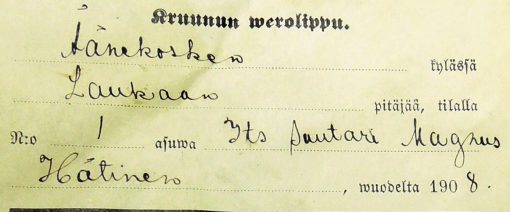 Kruunun werolippu.
Äänekosken kylässä
Laukaan pitäjää, tilalla
N:o 1 asuwa Its suutari Magnus
Hätinen, wuodelta 1908.